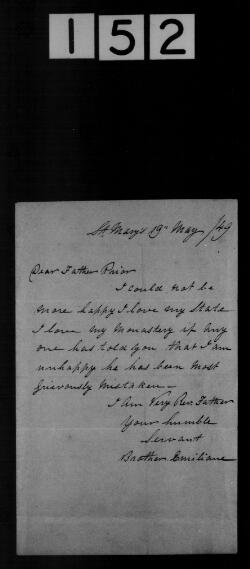 152
St. Mary's 19th May /49
Dear Father Prior
I could not be
more happy I love my State
I love my Monastery if any
one has told you that I am
unhappy he has been most
grievously mistaken —
I Am Very Rev. Father
Your humble
Servant
Brother Emiliane